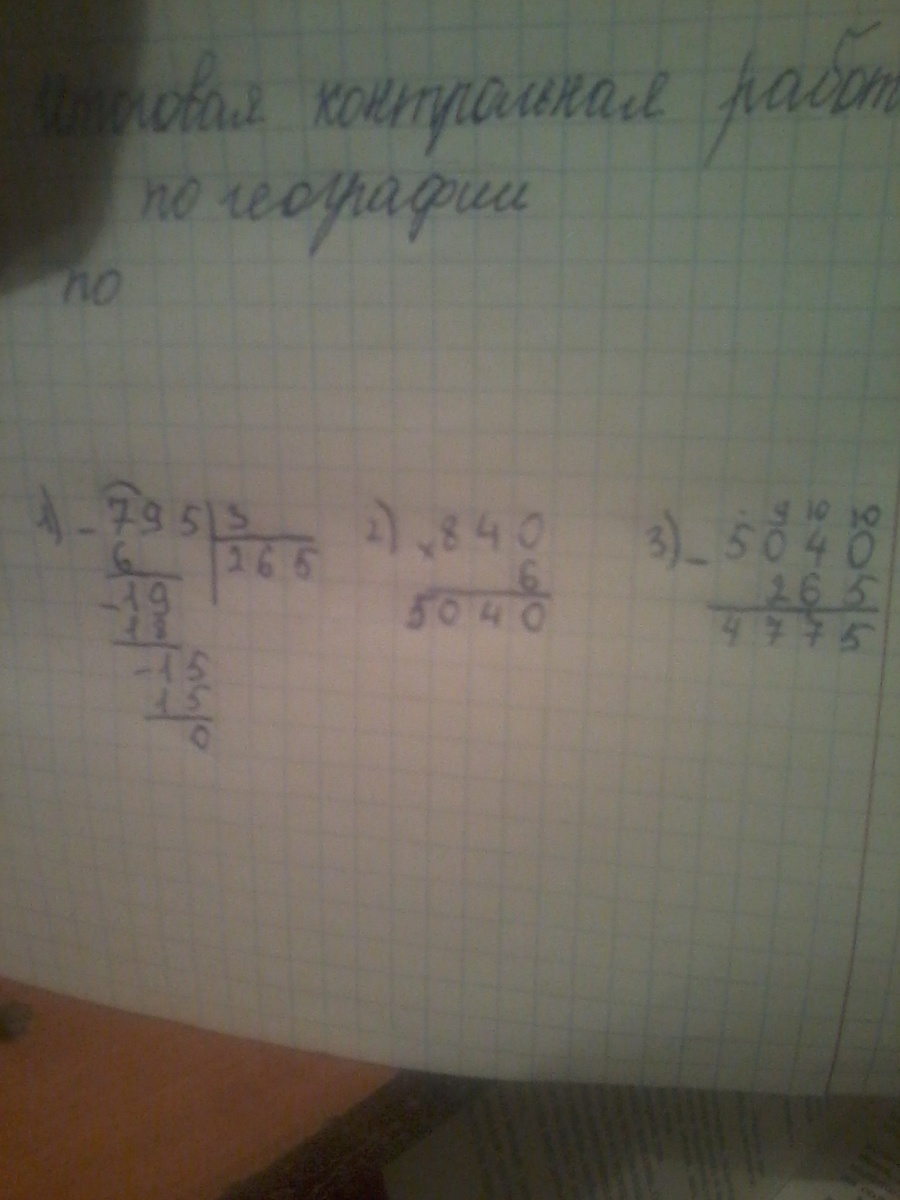 Итоговая контрольная работ
по географии
по
1) - 795 | 3
6 | 265
- 19
18
- 15
15
0
2) × 840
6
5040
3) - 5040
9 10 10
265
4775